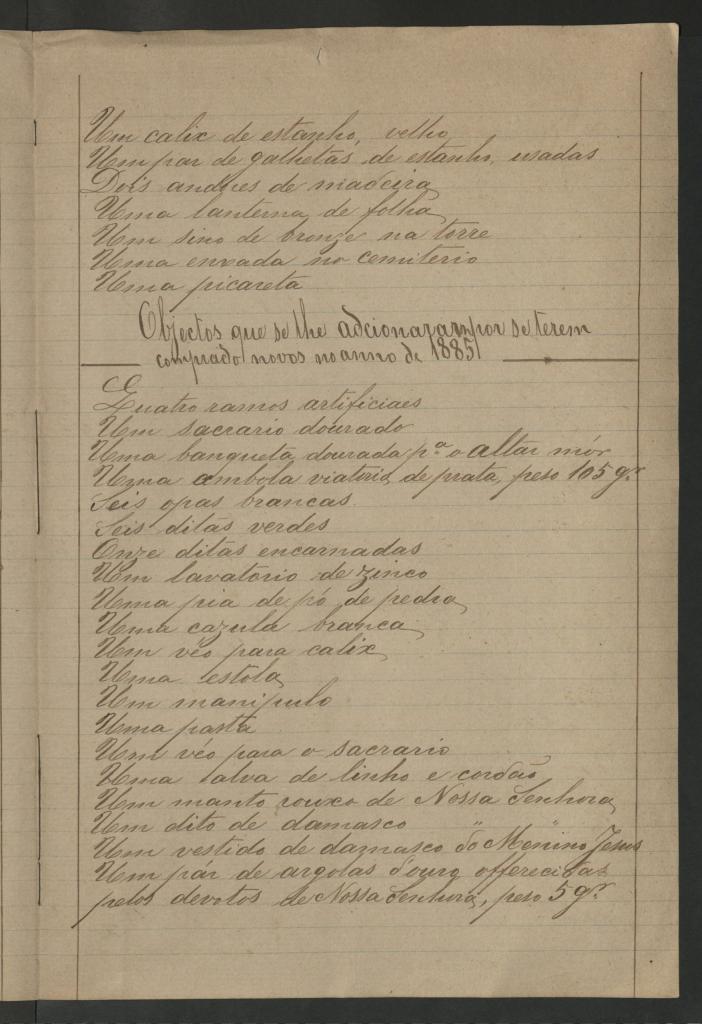 Um calix de estanho, velho
Um par de galhetas de estanho, usadas
Dois andores de madeira
Uma lanterna de folha
Um sino de bronze na torre
Uma enxada no cemiterio
Uma picareta
Objectos que se lhe adcionaram por se terem
comprado novos no anno de 1885
Quatro ramos artificiaes
Um sacrario dourado
Uma banqueta dourada pª o altar mór
Uma ambola viatoria de prata, peso 105 gr
Seis opas brancas
Seis ditas verdes
Onze ditas encarnadas
Um lavatorio de zinco
Uma pia de pó de pedra
Uma cazula branca
Um véo para calix
Uma estola
Um manipulo
Uma pasta
Um véo para o sacrario
Uma alva de linho e cordão
Um manto rouxo de Nossa Senhora
Um dito de damasco " "
Um vestido de damasco do Menino Jesus
Um pár de argolas d'ouro offerecidas
pelos devotos de Nossa Senhora, peso 5 gr